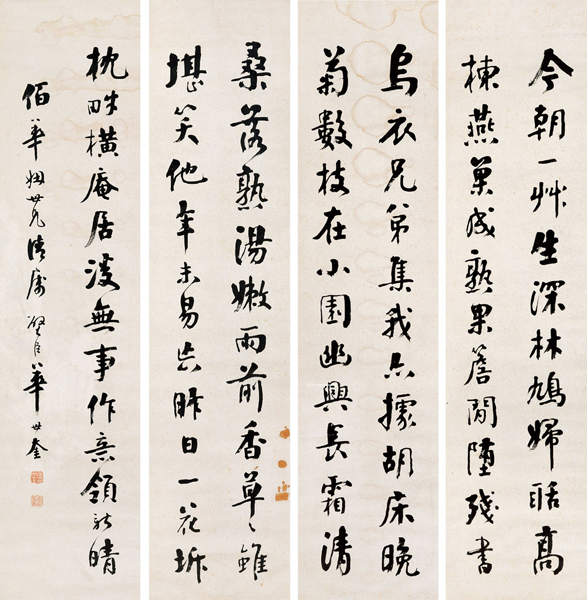 今朝一艸生深林鳩婦聒高
棟燕巢成熟果簷間墮殘書
烏衣兄弟集我亦據胡床晚
菊數枝在小園幽興長霜清
桑落熟湯嫩雨前香草〻雖
堪笑他年未易忘昨日一花坼
枕畔橫庵居無事作意領新晴
佰華姻世兄清屬 璧臣華世奎